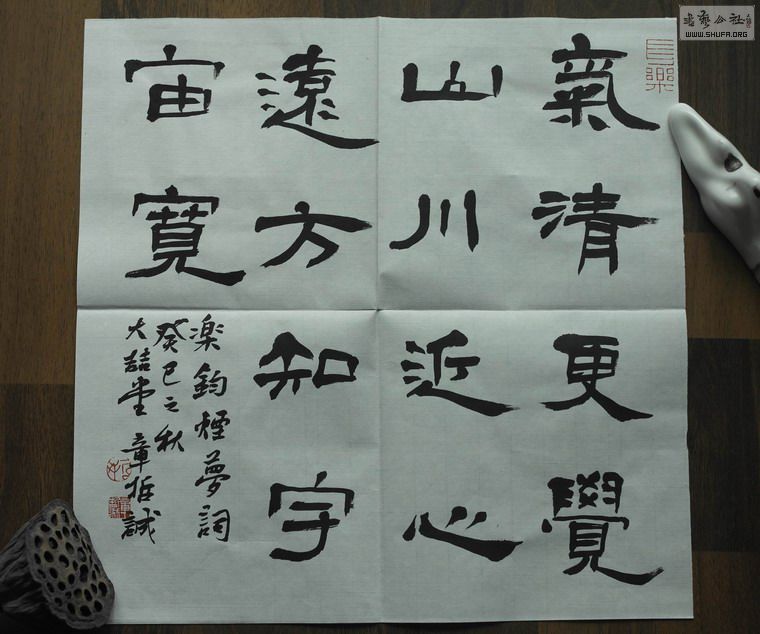 氣清更覺
山川近心
遠方知宇
宙寬
楽鈞煙夢詞
癸巳之秋
大喆堂章哲誠
書藝公社
WWW.SHUFA.ORG